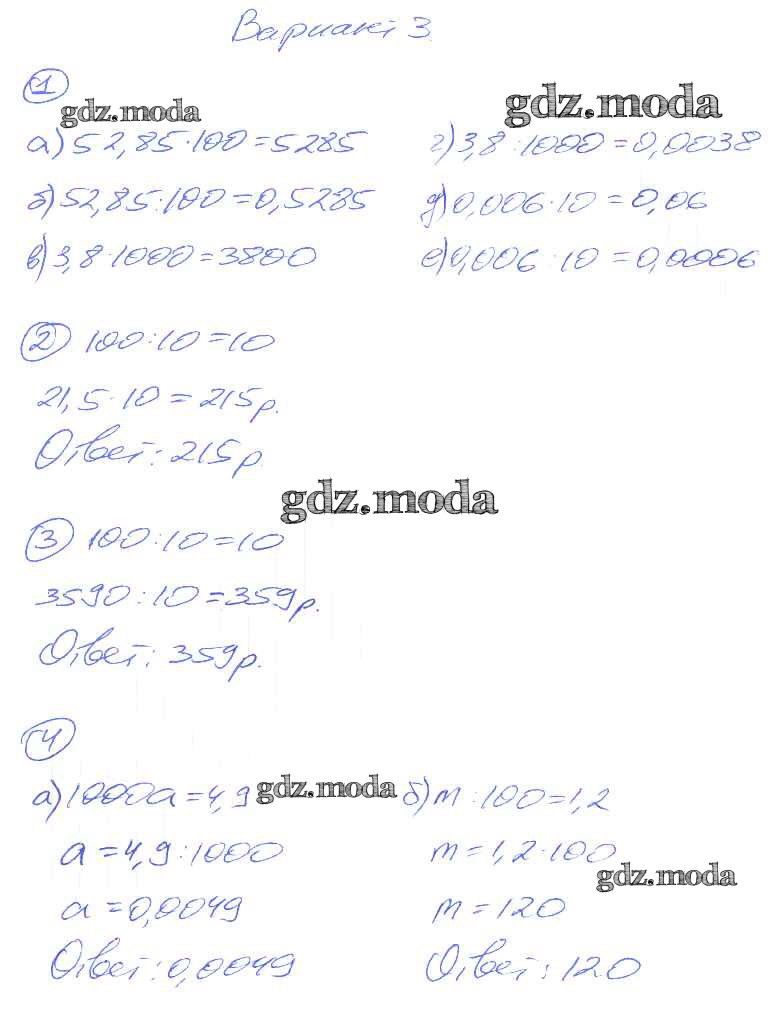 Вариант 3.
1
gdz.moda
gdz.moda
а) 52,85·100=5285
г) 3,8:1000=0,0038
б) 52,85:100=0,5285
д) 0,006·10=0,06
в) 3,8·1000=3800
е) 0,006:10=0,0006
2 100:10=10
21,5·10=215р.
Ответ: 215р.
gdz.moda
3 100:10=10
3590:10=359р.
Ответ: 359р.
4
а) 1000a=4,9
gdz.moda
б) m:100=1,2
a=4,9:1000
m=1,2·100
gdz.moda
a=0,0049
m=120
Ответ: 0,0049
Ответ: 120